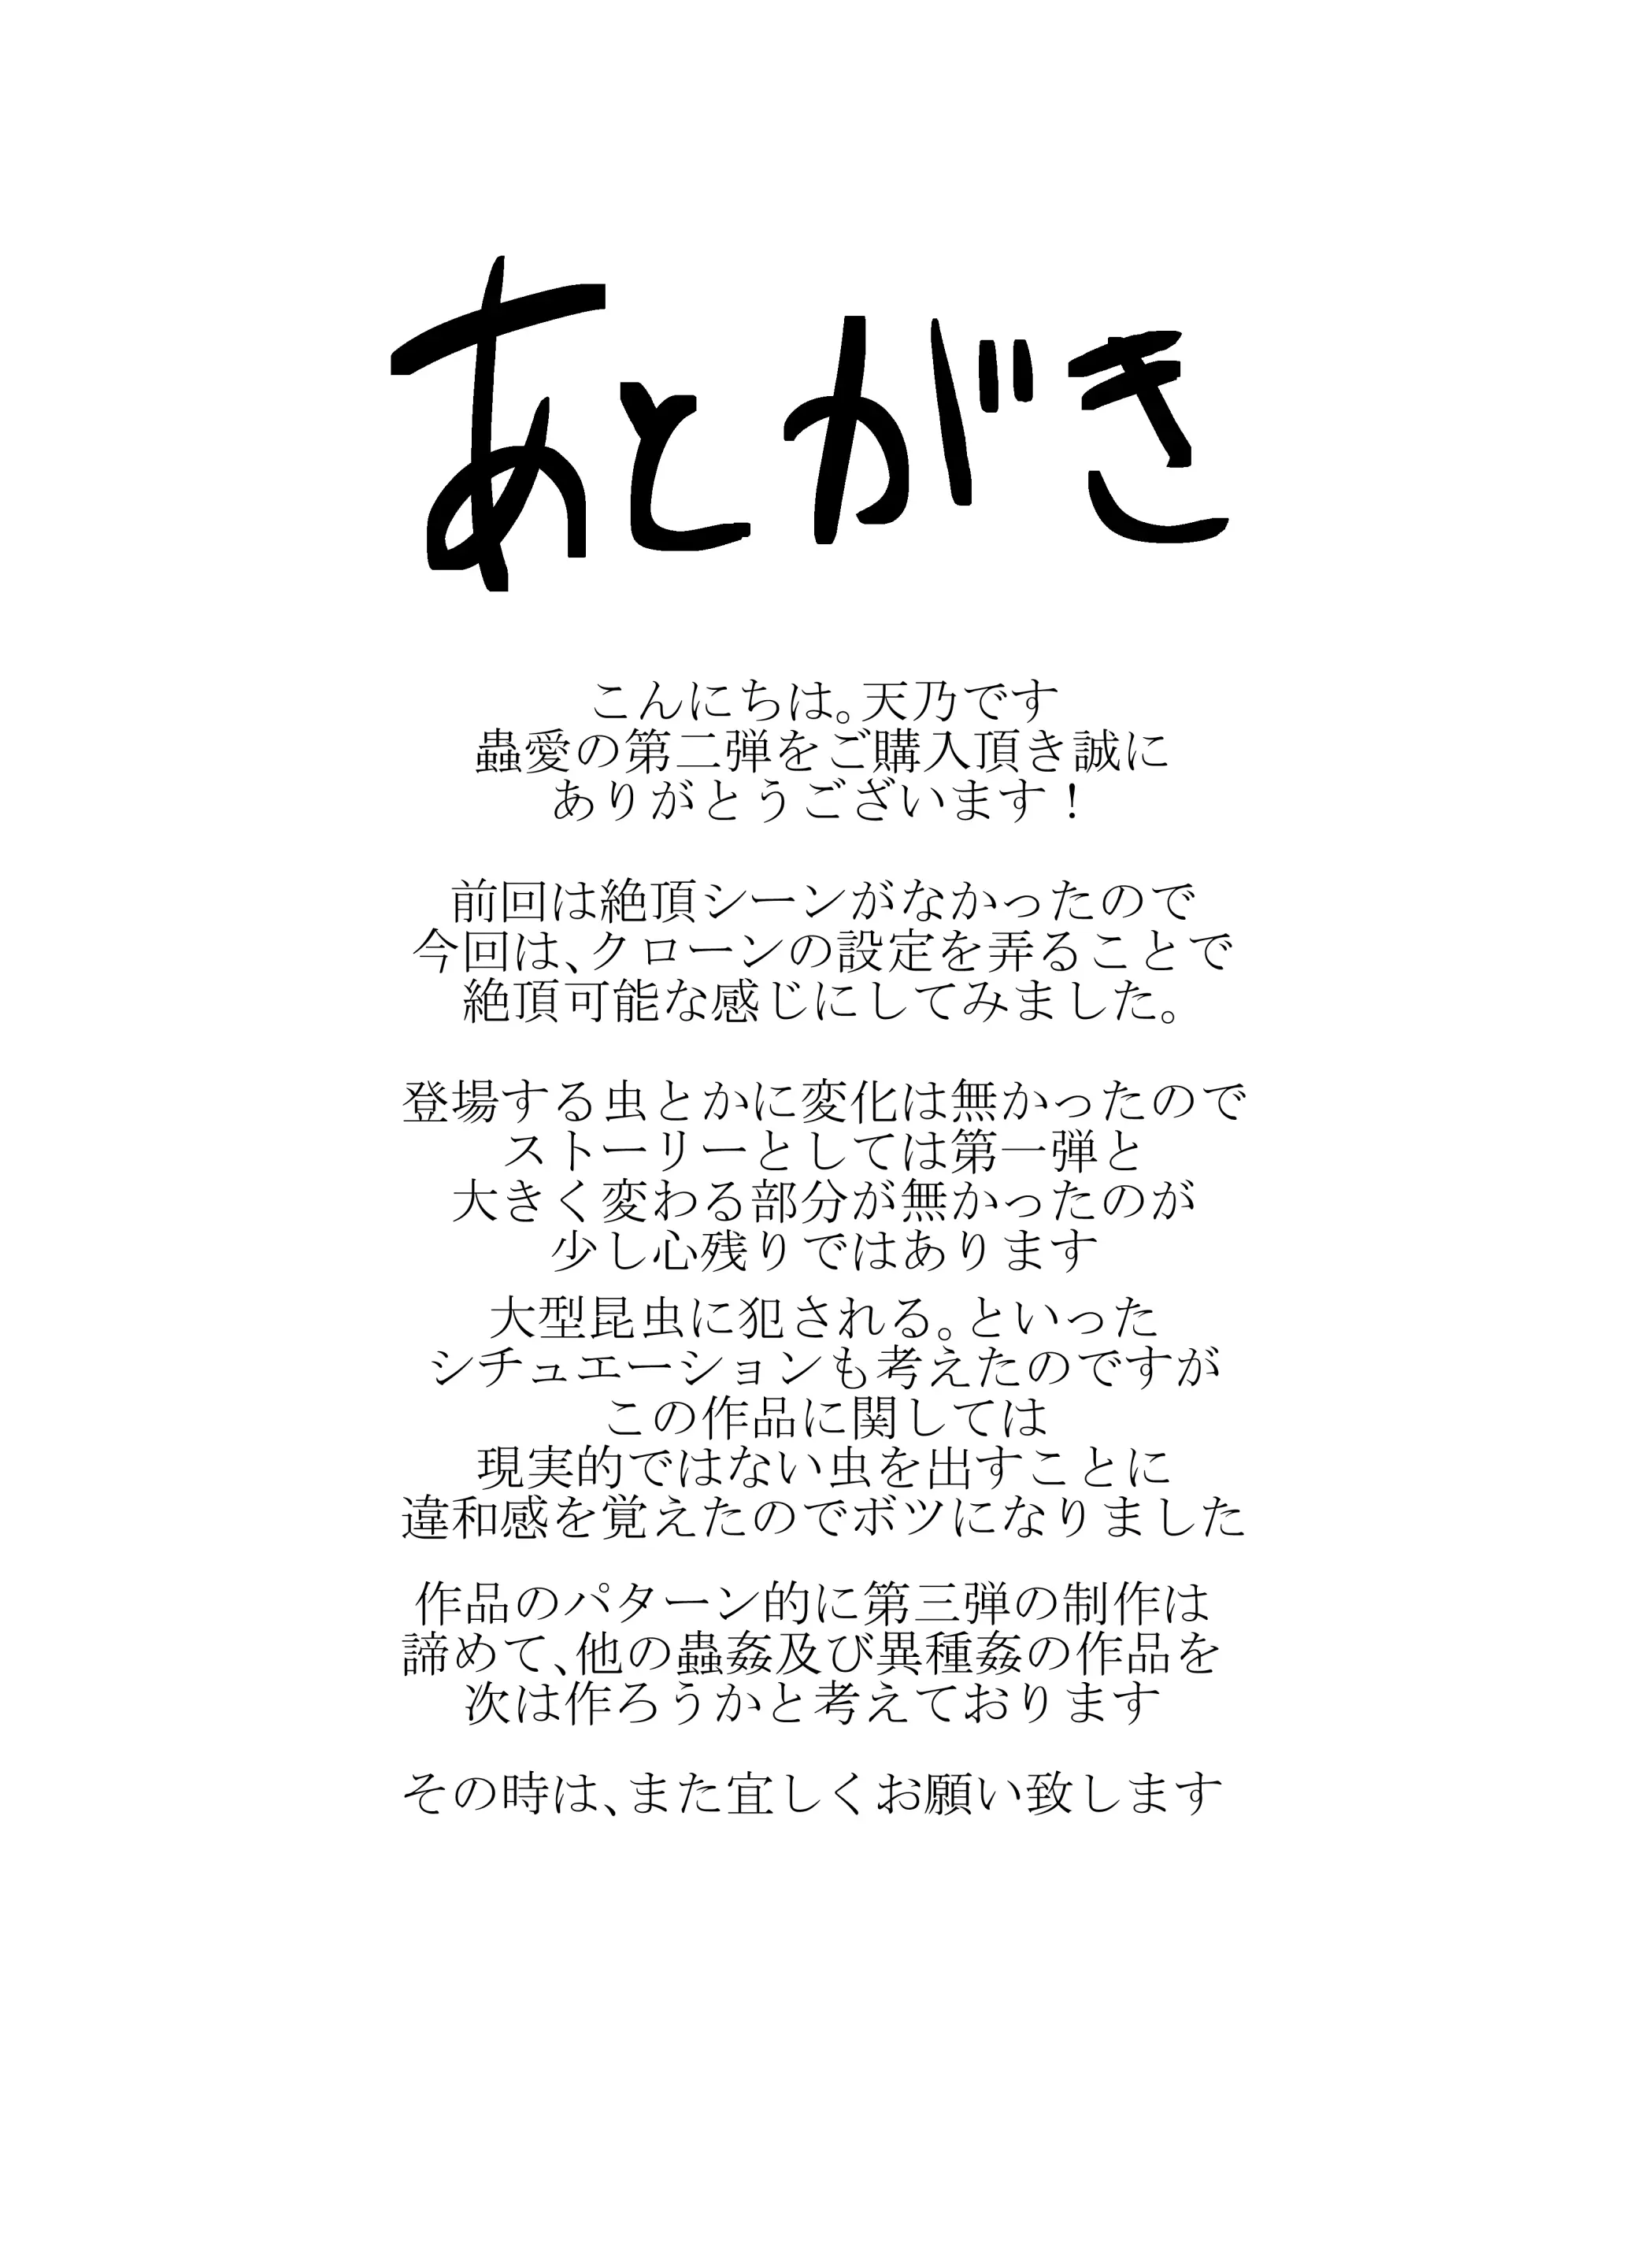 あとがき
こんにちは。天乃です
蟲愛の第二弾をご購入頂き誠に
ありがとうございます！
前回は絶頂シーンがなかったので
今回は、クローンの設定を弄ることで
絶頂可能な感じにしてみました。
登場する虫とかに変化は無かったので
ストーリーとしては第一弾と
大きく変わる部分が無かったのが
少し心残りではあります
大型昆虫に犯される。といった
シチュエーションも考えたのですが
この作品に関しては
現実的ではない虫を出すことに
違和感を覚えたのでボツになりました
作品のパターン的に第三弾の制作は
諦めて、他の蟲姦及び異種姦の作品を
次は作ろうかと考えております
その時は、また宜しくお願い致します